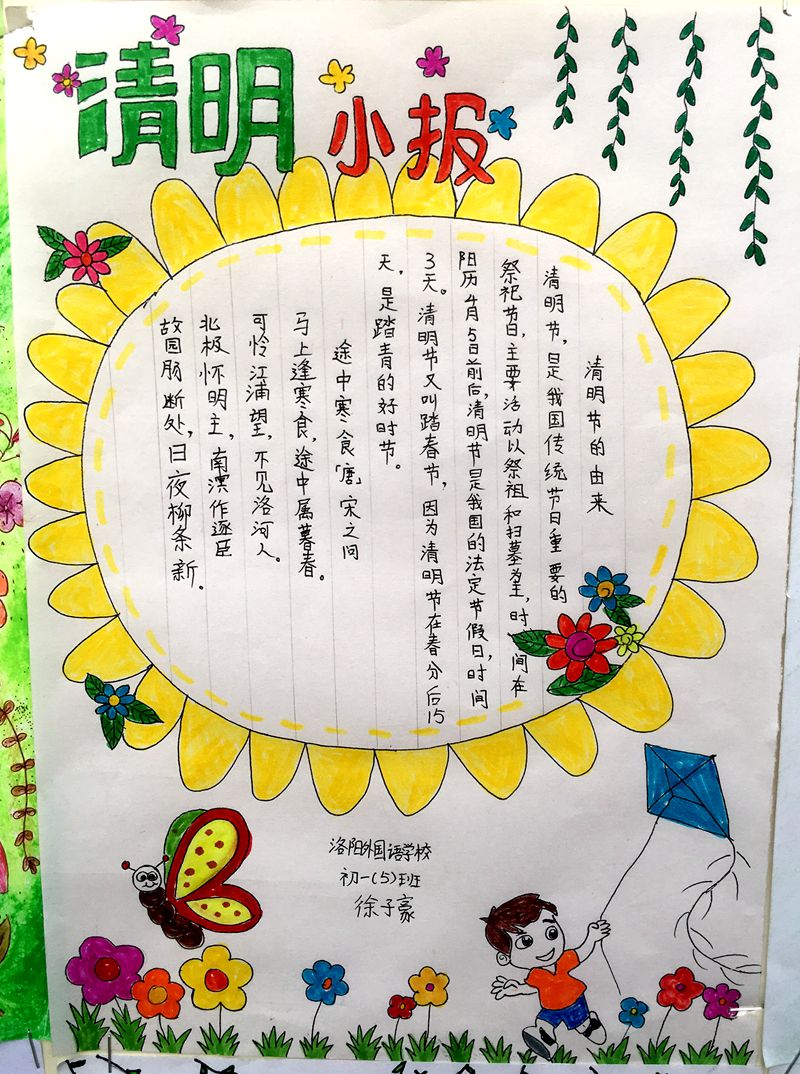 清明小报
清明节的由来
清明节，是我国传统节日重要的
祭祀节日，主要活动以祭祖和扫墓为主，时间在
阳历4月5日前后，清明节是我国的法定节假日，时间
3天。清明节又叫踏春节，因为清明节在春分后15
天，是踏青的好时节。
途中寒食「唐」宋之问
马上逢寒食，途中属暮春。
可怜江浦望，不见洛河人。
北极怀明主，南溟作逐臣
故园肠断处，日夜柳条新。
洛阳外国语学校
初一(5)班
徐子豪